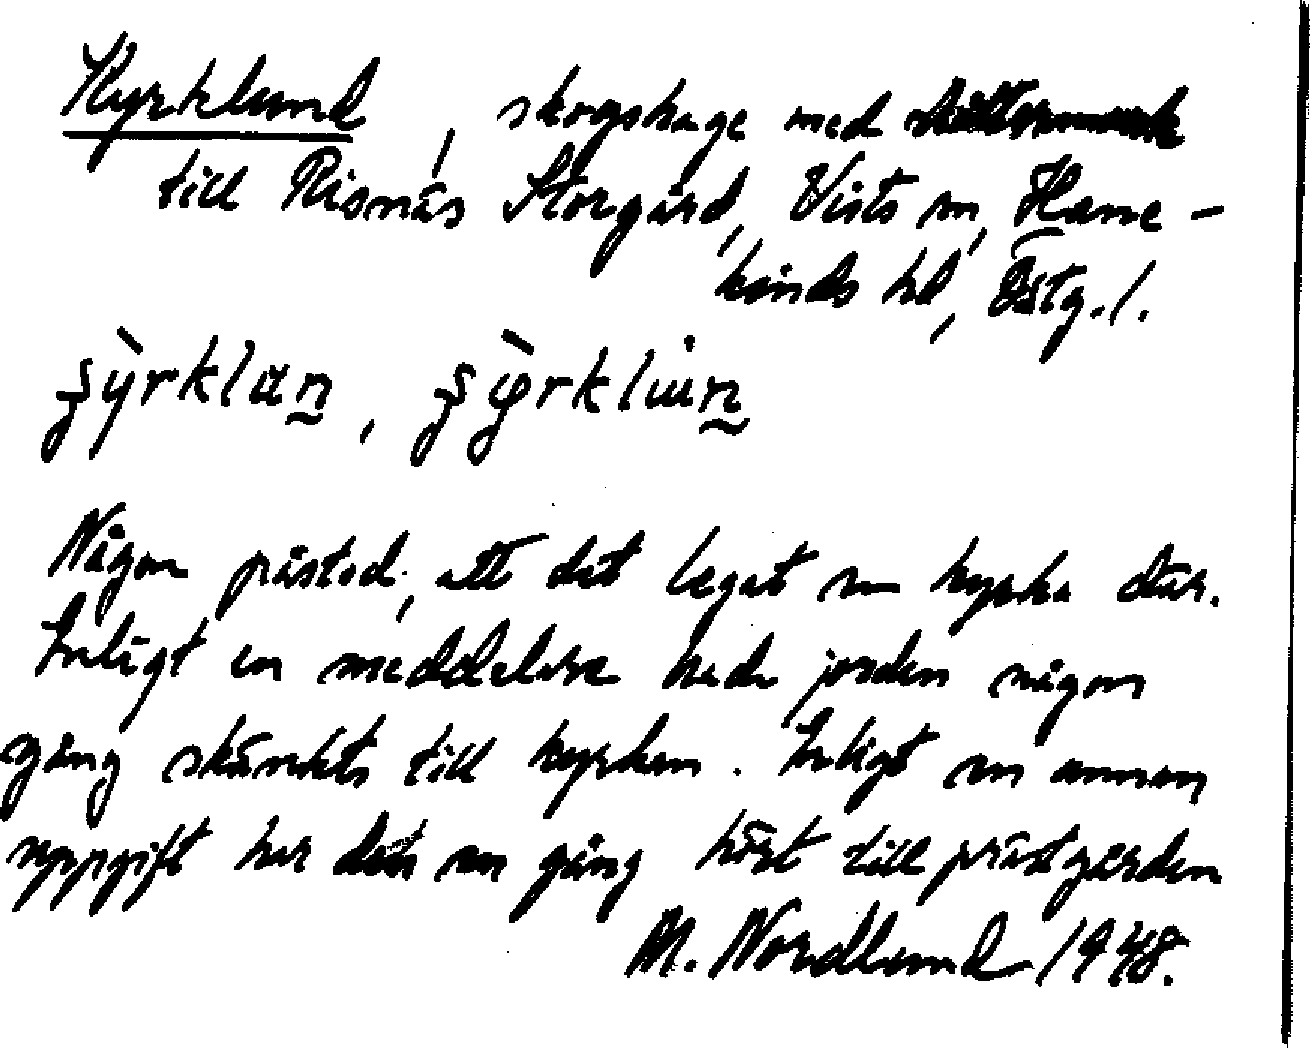 Kyrklund, skogshage med slåttermark
till Risnäs Storgård, Vists sn, Hane-
kinds hd, Östg. l.
Någon påstod, att det legat en kyrka där.
Enligt en meddelare hade jorden någon
gång skänkts till kyrkan. Enligt en annan
uppgift har den en gång hört till prästgården
M. Nordlund 1948.